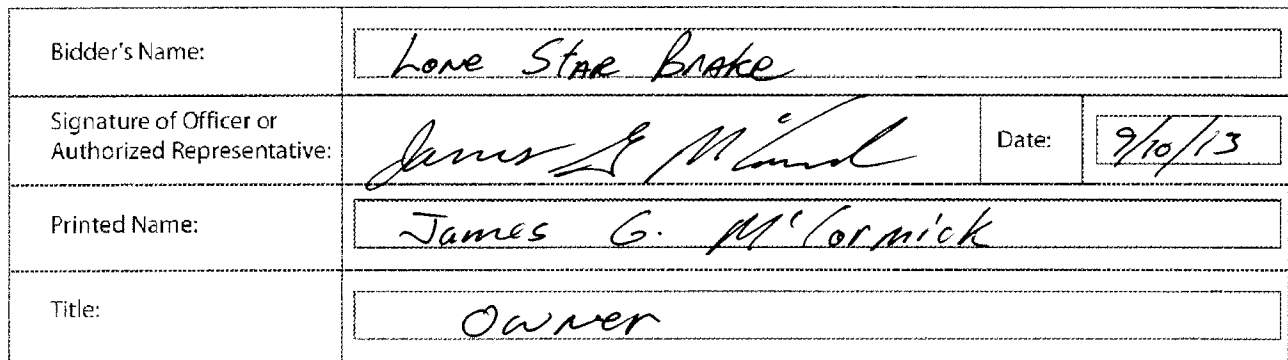 Bidder's Name: Lone Star Brake
Signature of Officer or
Authorized Representative: James G M'Cormick Date: 9/10/13
Printed Name: James G. M'Cormick
Title: Owner